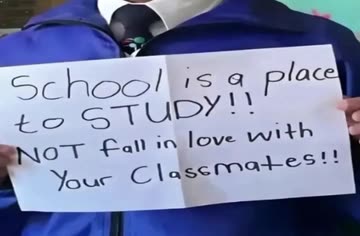 School is a place
to STUDY!!
NOT fall in love with
Your Classmates!!